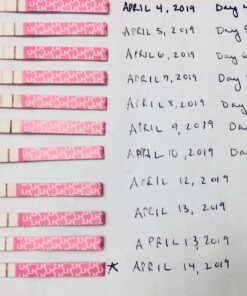 APRIL 4, 2019 Day
APRIL 5, 2019 Day
APRIL 6, 2019 Day
APRIL 7, 2019 Day
APRIL 8, 2019 Day
APRIL 9, 2019 Day
APRIL 10, 2019 Day
APRIL 12, 2019
APRIL 13, 2019
APRIL 13, 2019
* APRIL 14, 2019